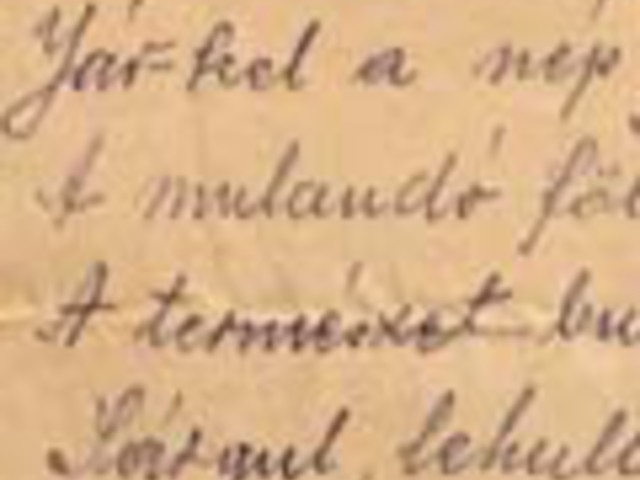 Jár-kel a nép
A mulandó föl
A természet bu
Sárgul, lehull